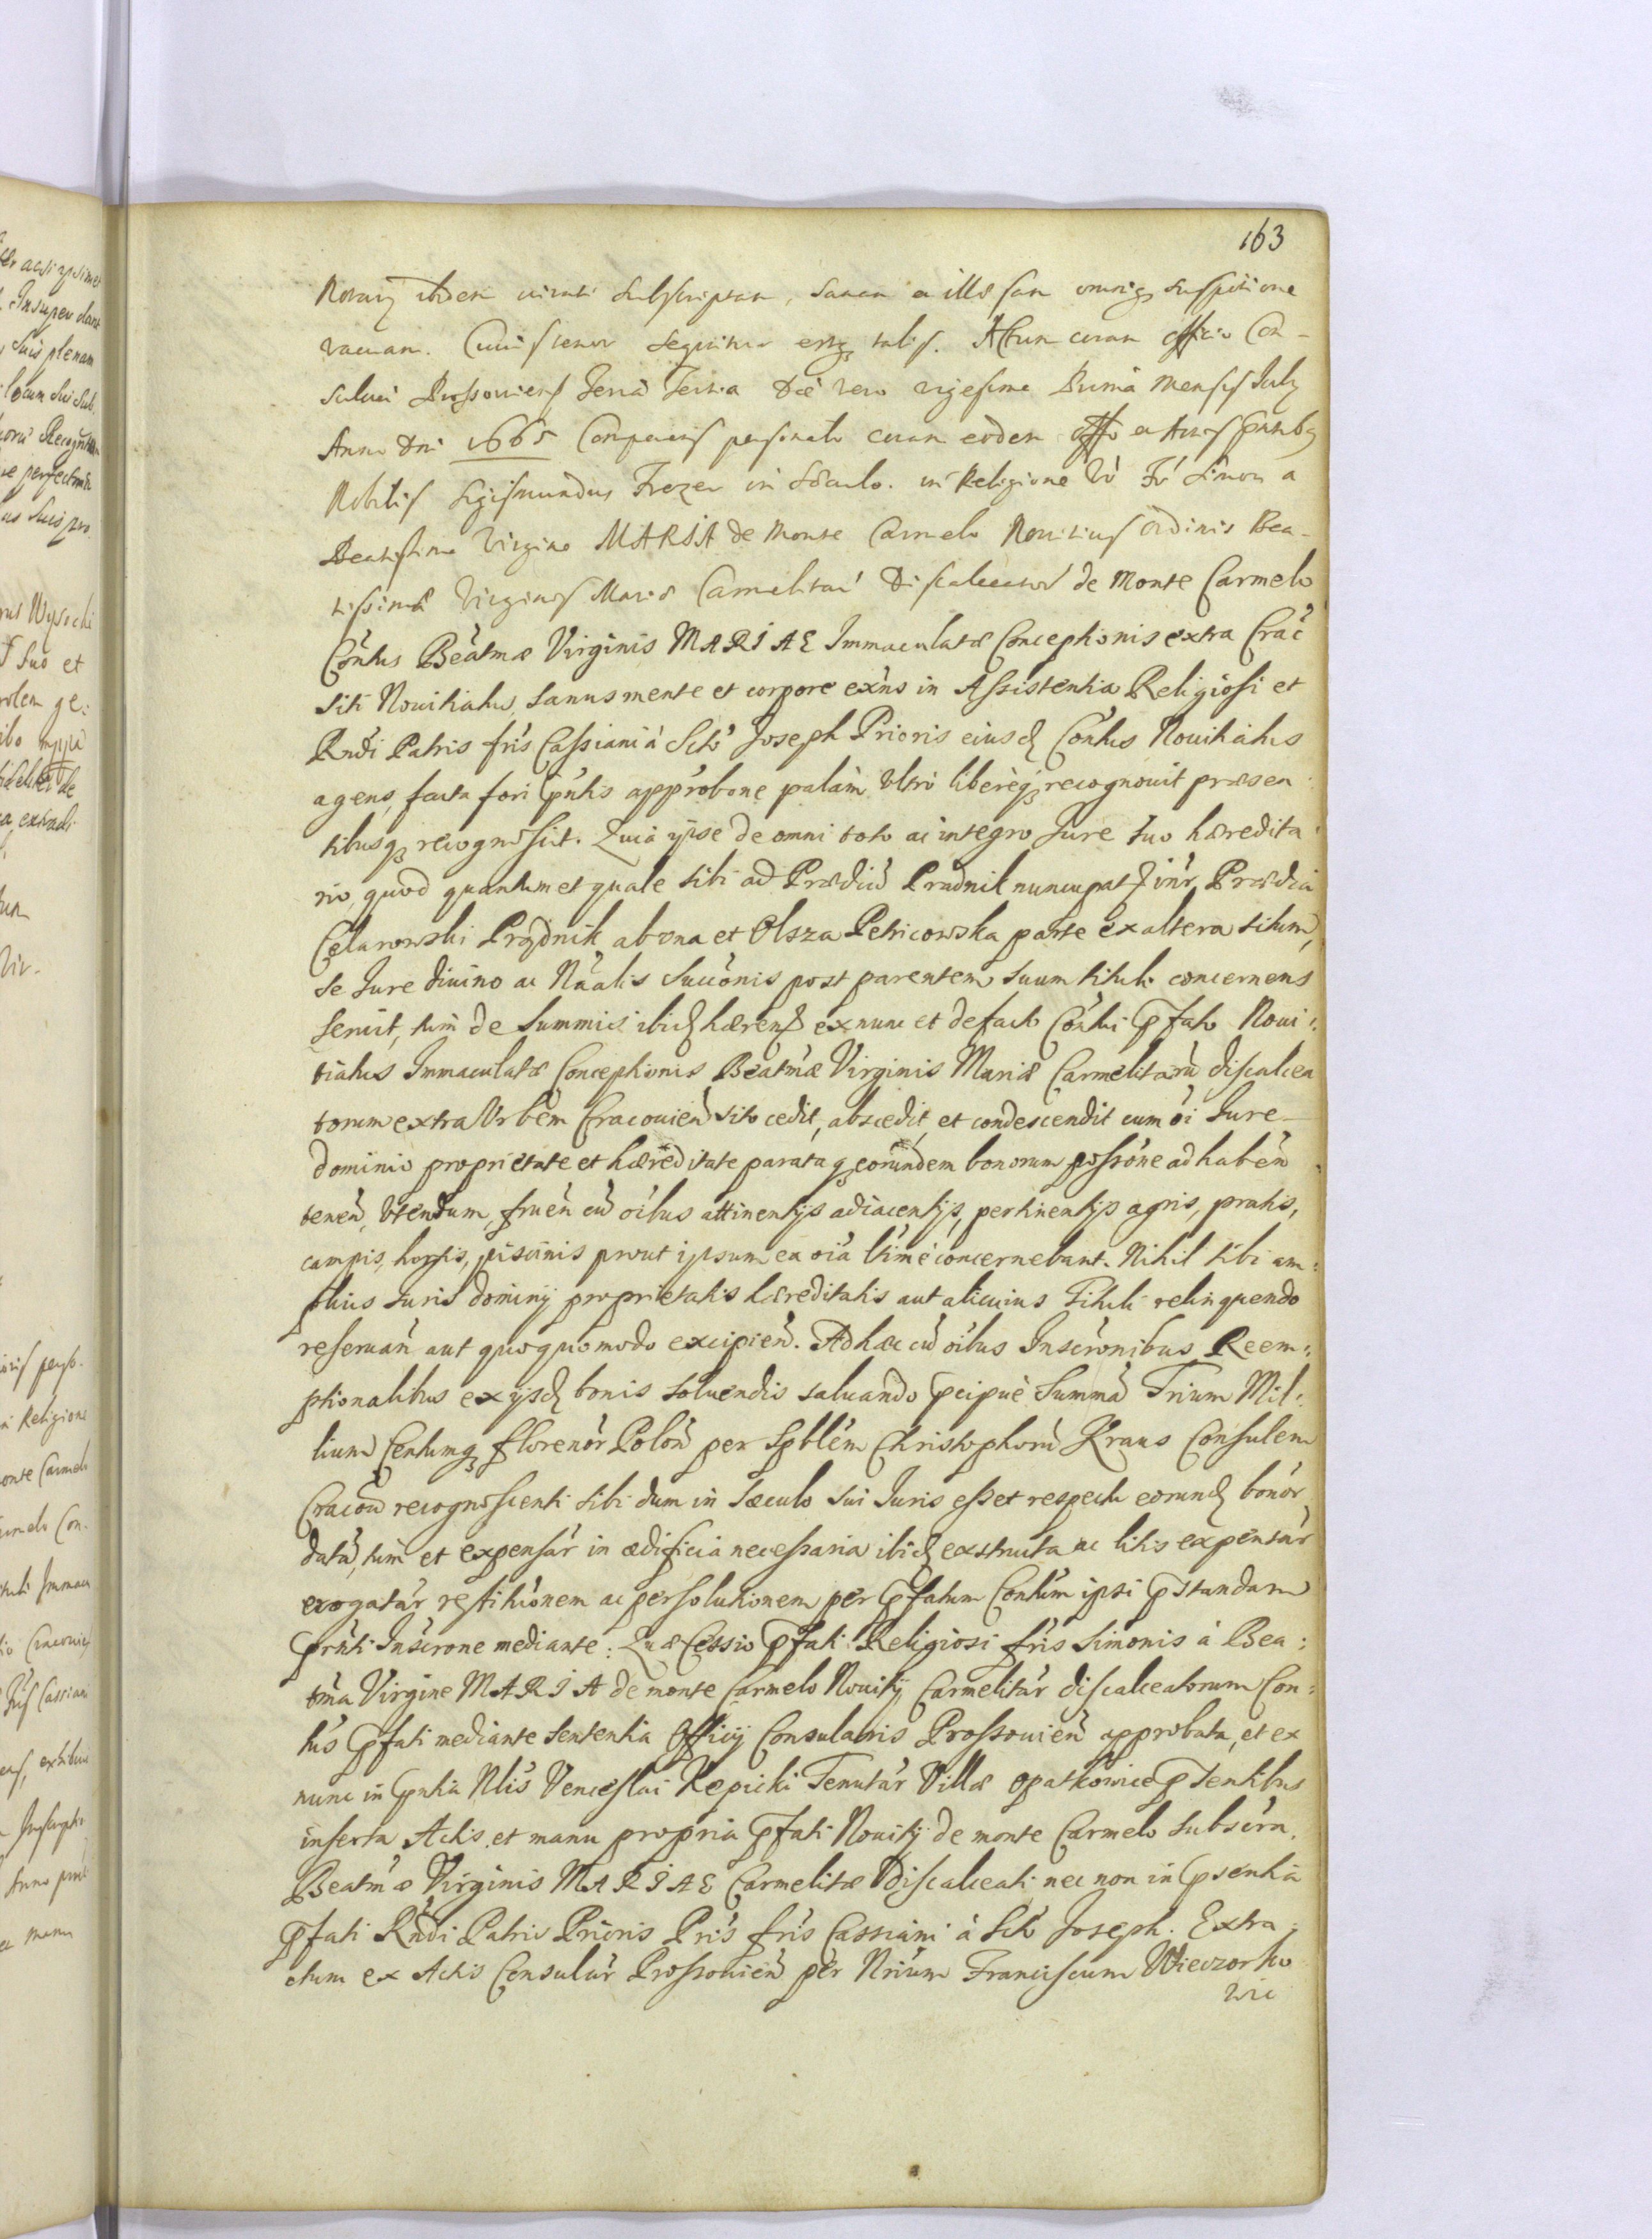 163
Notarij ibidem iurati subscriptam, sanam et illæsam omniq; suspitione
vacuam. Cuius tenor sequitur estq; talis. Actum coram officio Con-
sulari Prossouiens feria Tertia die vero vigesima Prima mensis July
Anno dni 1665 Comparens personalr coram eodem offo et Actis pntibq
Nobilis Sigismundus Frezer in Sæculo. in Religione vo Fr Simon a
Beatissima Virgine MARIA de Monte Carmelo Nouitius Ordinis Bea-
tissimæ Virginis Mariæ Carmelitar Discalceator de Monte Carmelo
Contus Beatmæ Virginis MARIAE Immaculatæ Conceptionis extra Crac
siti Nouitiatus, sanus mente et corpore exns in Assistentia Religiosi et
Rndi Patris fris Cassiani à Scto Joseph Prioris eiusd Contus Nouitiatus
agens, facta fori pntis approbone palàm vltrò liberèq; recognouit præsen
tibusq; recognoscit. Quia ipse de omni toto ac integro Jure suo hæredita
rio, quod quantum et quale sibi ad Prædiũ Prądnik nuncupat inr Prædia
Celarowski Prądnik ab vna et Olsza Petricowska parte ex altera situm,
se Jure diuino ac Nãalis Succonis post parentem suum tituli concernens
seruit, tum de Summis ibid hærend ex nunc et de facto Contui pfato Noui:
tiatus Immaculatæ Conceptionis Beatmæ Virginis Mariæ Carmelitarũ discalcea
torum extra Vrbem Cracouien sito cedit, abscedit, et condescendit cum oi Jure
dominio proprietate et hæreditate parataq; eorundem bonorum possone ad haben
tenen, vtendum, fruen cũ oibus attinentijs adiacentijs, pertinentijs agris, pratis,
campis, hortis, piscinis prout ipsum ea oia vltimè concernebant. Nihil sibi am:
plius Juris dominij proprietatis hæreditatis aut alicuius Tituli relinquendo
reseruan aut quoquomodo excipien. Ad hæc cũ oibus Inscronibus Reem:
ptionalibus ex ijsd bonis soluendis saluando pcipuè Summã Trium Mil:
lium Centumq; florenor Polon per Spblem Christophorũ Kraus Consulem
Cracou recognoscenti sibi dum in Sæculo sui Juris esset respectu eorund bonor
datã, tum et expensar in ædificia necessaria ibid exstructa ac litis expensar
erogatar restitucionem ac persolutionem per pfatum Contum ipsi pstandam
prnti Inscrone mediante: Quæ Cessio pfati Religiosi fris Simonis à Bea:
tma Virgine MARIA de monte Carmelo Nouitij Carmelitar discalceatorum Con:
tus pfati mediante sententia Officij Consularis Prossouien approbata, et ex
nunc in pntia Nlis Venceslai Kępicki Tenutar Villæ Opatkowice pntibus
inserta Actis, et manu propria pfati Nouitij de monte Carmelo subscra,
Beatmæ Virginis MARIAE Carmelitæ Discalceati nec non in psentia
pfati Rndi Patris Prioris Pris fris Cassiani à Scto Joseph. Extra:
ctum ex Actis Consular Prossouien per Nrium Franciscum Wieczorko
wic